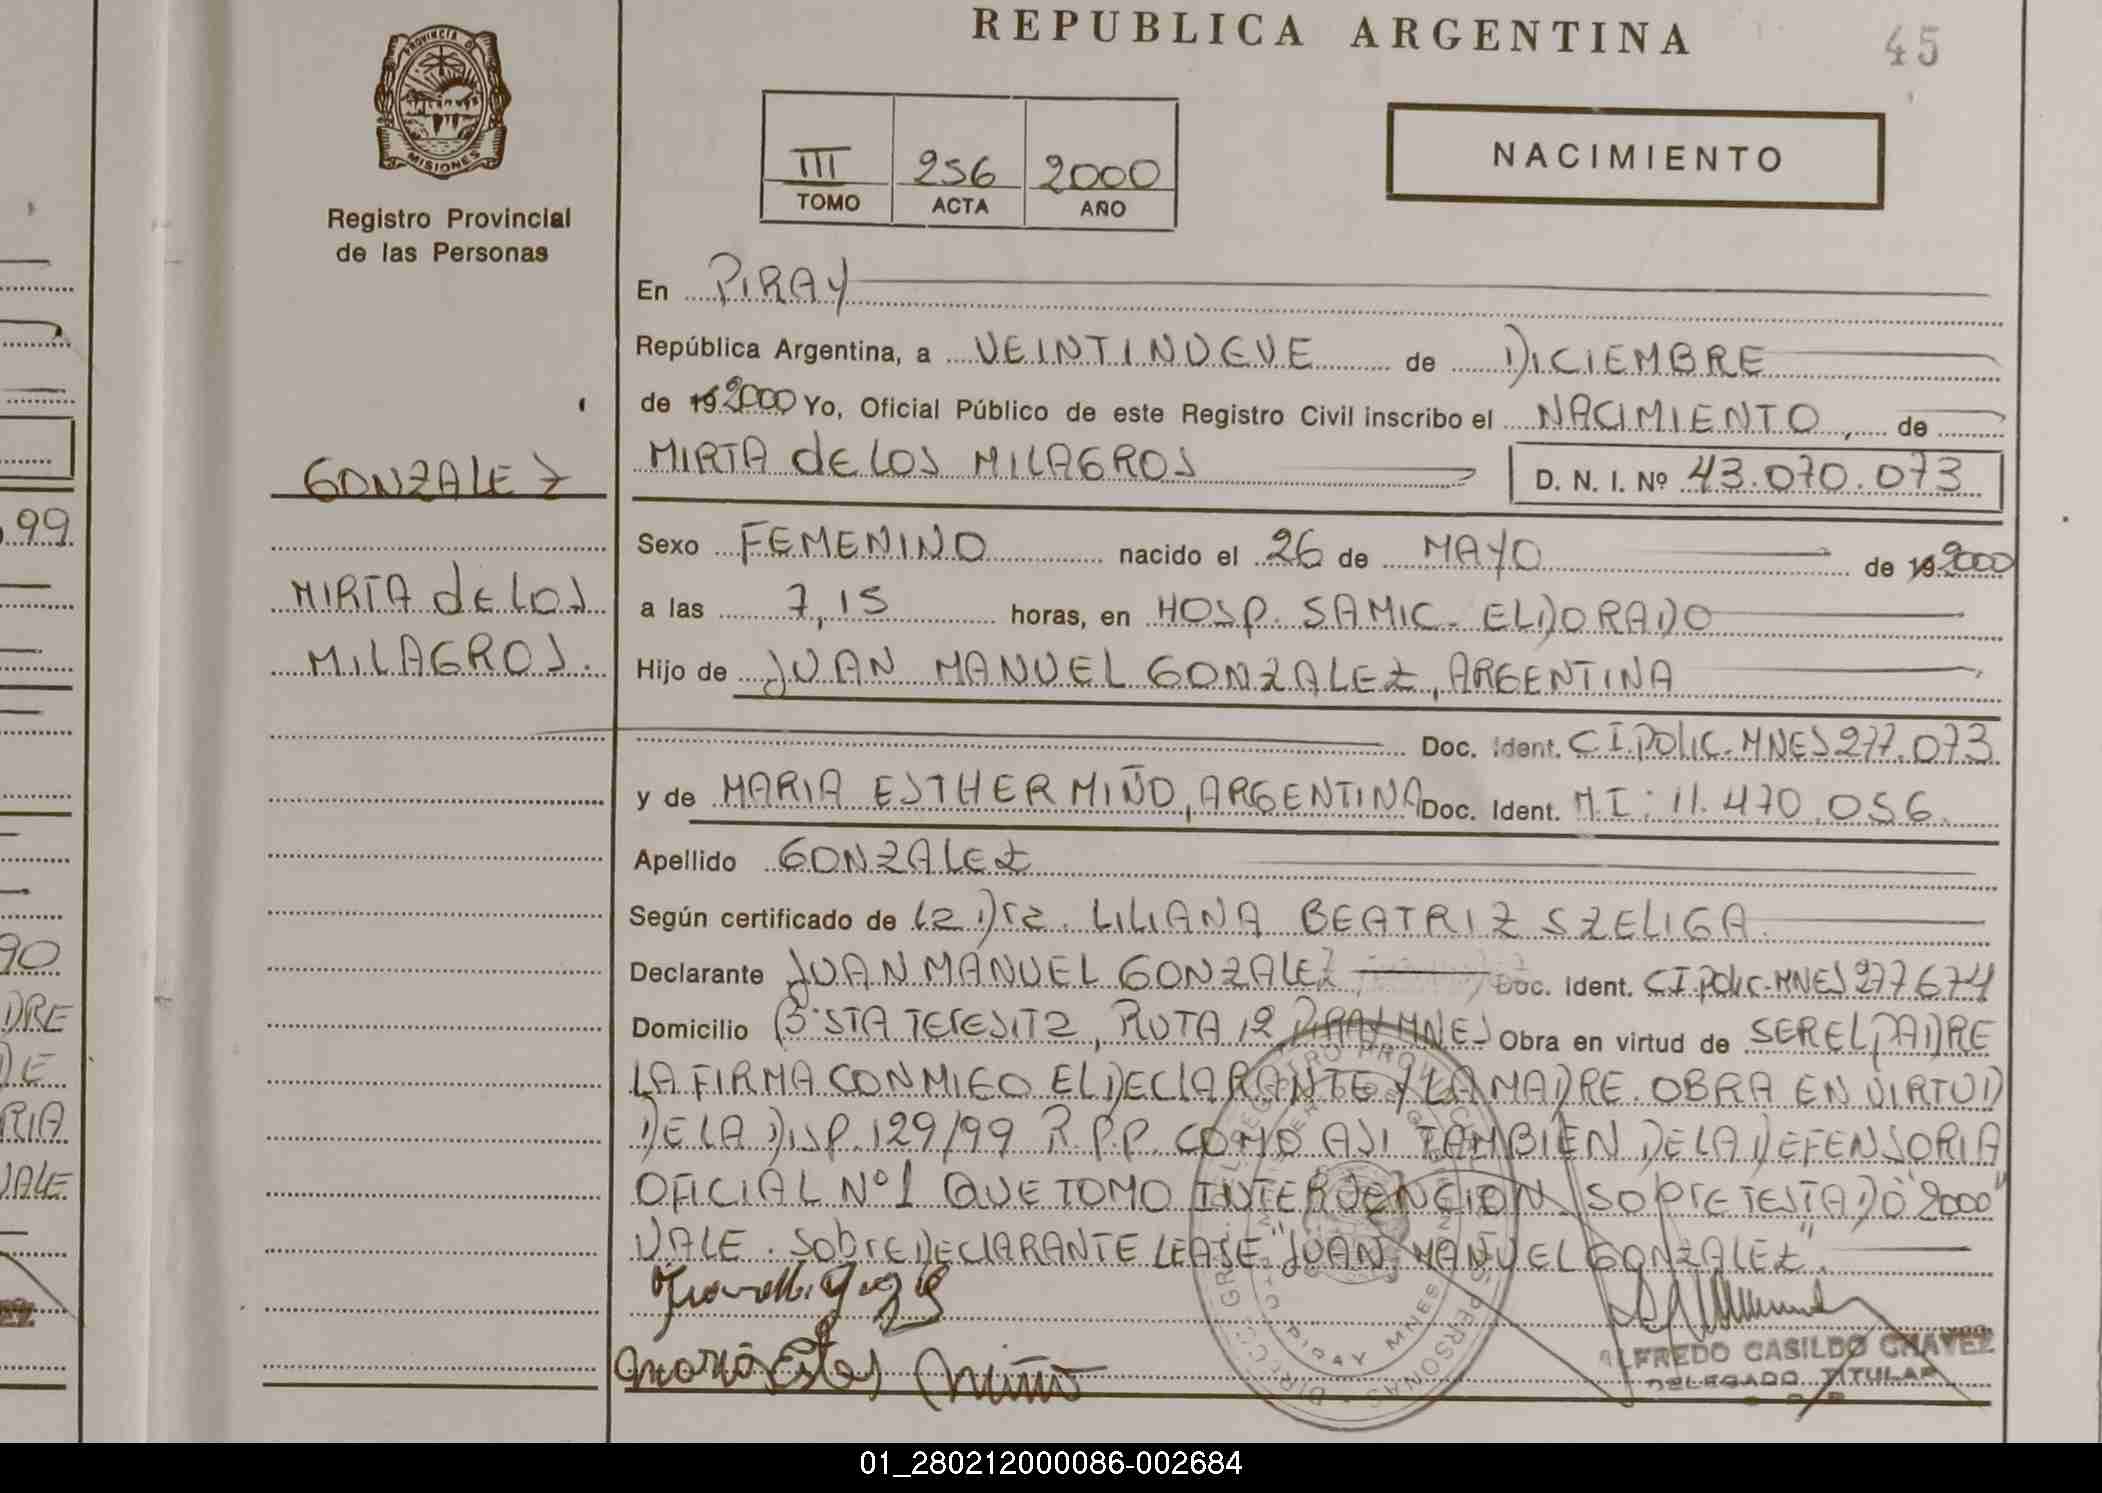 REPUBLICA ARGENTINA
45
PROVINCIA DE
MISIONES
Registro Provincial
de las Personas
III 256 2000
TOMO ACTA AÑO
NACIMIENTO
En PIRAY
República Argentina, a VEINTINUEVE de DICIEMBRE
de 192000 Yo, Oficial Público de este Registro Civil inscribo el NACIMIENTO, de
MIRTA de LOS MILAGROS D. N. I. Nº 43.070.073
GONZALEZ
MIRTA de LOS
MILAGROS.
Sexo FEMENINO nacido el 26 de MAYO de 192000
a las 7,15 horas, en HOSP. SAMIC. ELDORADO
Hijo de JUAN MANUEL GONZALEZ, ARGENTINA
Doc. Ident. C.I.POLIC.MNES 277.073
y de MARIA ESTHER MIÑO, ARGENTINA Doc. Ident. M.I: 11.470.056
Apellido GONZALEZ
Según certificado de la Dra. LILIANA BEATRIZ SZELIGA
Declarante JUAN MANUEL GONZALEZ Doc. Ident. C.I.POLIC.MNES 277674
Domicilio Bº STA TERESITA, RUTA 12, PIRAY MNES Obra en virtud de SER EL PADRE
LA FIRMA CONMIGO EL DECLARANTE Y LA MADRE. OBRA EN VIRTUD
DE LA DISP. 129/99 R.P.P. COMO ASI TAMBIEN DE LA DEFENSORIA
OFICIAL Nº 1 QUE TOMO INTERVENCION. SOBRETESTADO "2000"
VALE. SobreDECLARANTE LEASE "JUAN MANUEL GONZALEZ".
Maria Ester Miño
PIRAY MNES
ALFREDO CASILDO CHAVEZ
DELEGADO TITULAR
99
90
DRE
DE
RIA
VALE
01_280212000086-002684